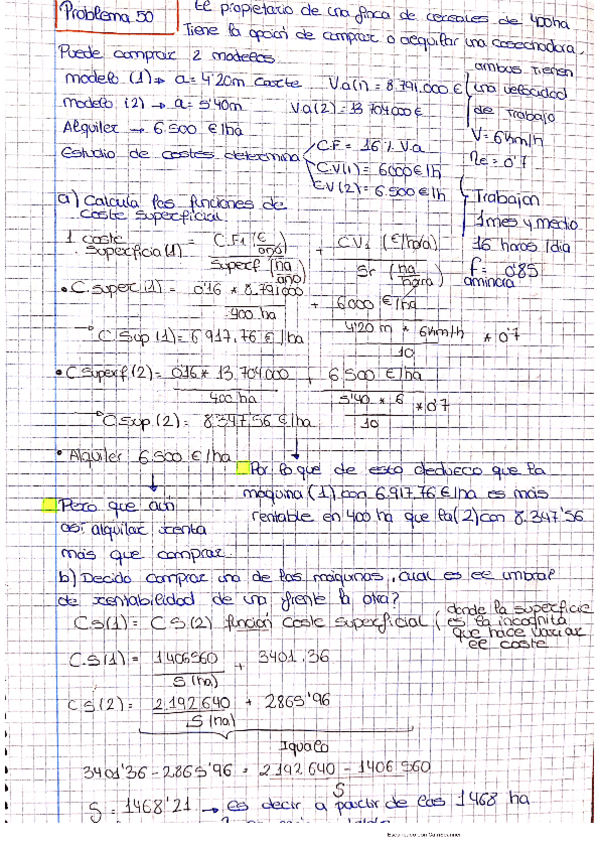 Problema 50
El propietario de una finca de cereales de 400ha
Tiene la opción de comprar o alquilar una cosechadora.
Puede comprar 2 modelos
modelo (1) → a = 4'20m corte Va(1) = 8.791.000 €
modelo (2) → a = 5'40m Va(2) = 13 704000 €
Alquiler → 6.500 €/ha
ambos tienen
una velocidad
de trabajo
V = 6Km/h
ηe = 0'7
Estudio de costes determina
C.F = 16 % Va
C.V(1) = 6000 €/h
C.V(2) = 6.500 €/h
Trabajan
1 mes y medio
16 horas/día
f = 0'85
a) Calcula las funciones de
coste superficial.
1 coste
superficia(1) = C.F1 (€/año) / Superf (ha/año) + CV1 (€/hora) / Sr (ha/hora)
• C.super(1) = 0'16 * 8.791000 / 400 ha + 6000 €/ha / 4'20 m * 6Km/h / 10 * 0'7
→ C Sup (1) = 6917,76 €/ha
• C superf (2) = 016 * 13.704000 / 400 ha + 6500 €/ha / 5'40 * 6 / 10 * 0'7
C Sup. (2) = 8347'56 €/ha
• Alquiler 6.500 €/ha
Por lo que de esto deduzco que la
máquina (1) con 6.917,76 €/ha es más
rentable en 400 ha que la (2) con 8.347'56
Pero que aún
así alquilar renta
más que comprar
b) Decido comprar una de las máquinas, cual es el umbral
de rentabilidad de una frente la otra?
C.S(1) = C.S.(2) función coste superficial (donde la superficie
es la incógnita
que hace variar
el coste
C.S(1) = 1406560 / S(ha) + 3401.36
C.S(2) = 2.192.640 / S(ha) + 2865'96
Igualo
3401'36 - 2865'96 = 2192.640 - 1406.560 / S
S = 1468'21 → es decir a partir de las 1468 ha